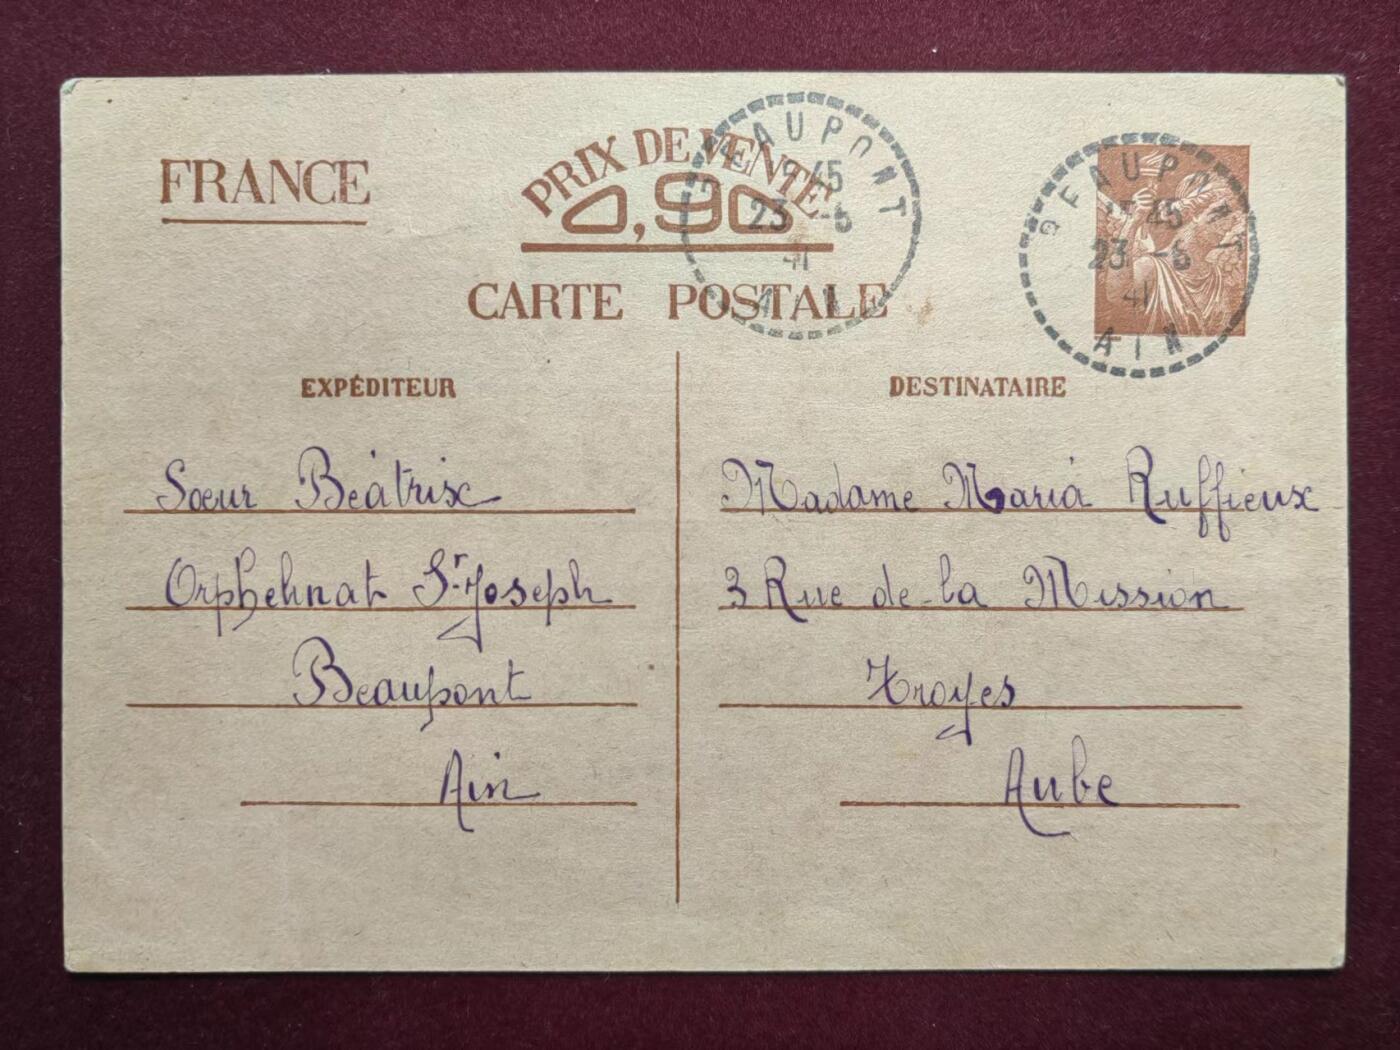 FRANCE
PRIX DE VENTE
0,90
CARTE POSTALE
BEAUPONT
45
23 -6
41
AIN
BEAUPONT
45
23 -6
41
AIN
EXPÉDITEUR
Sœur Béatrix
Orphelinat St Joseph
Beaupont
Ain
DESTINATAIRE
Madame Maria Ruffieux
3 Rue de la Mission
Troyes
Aube